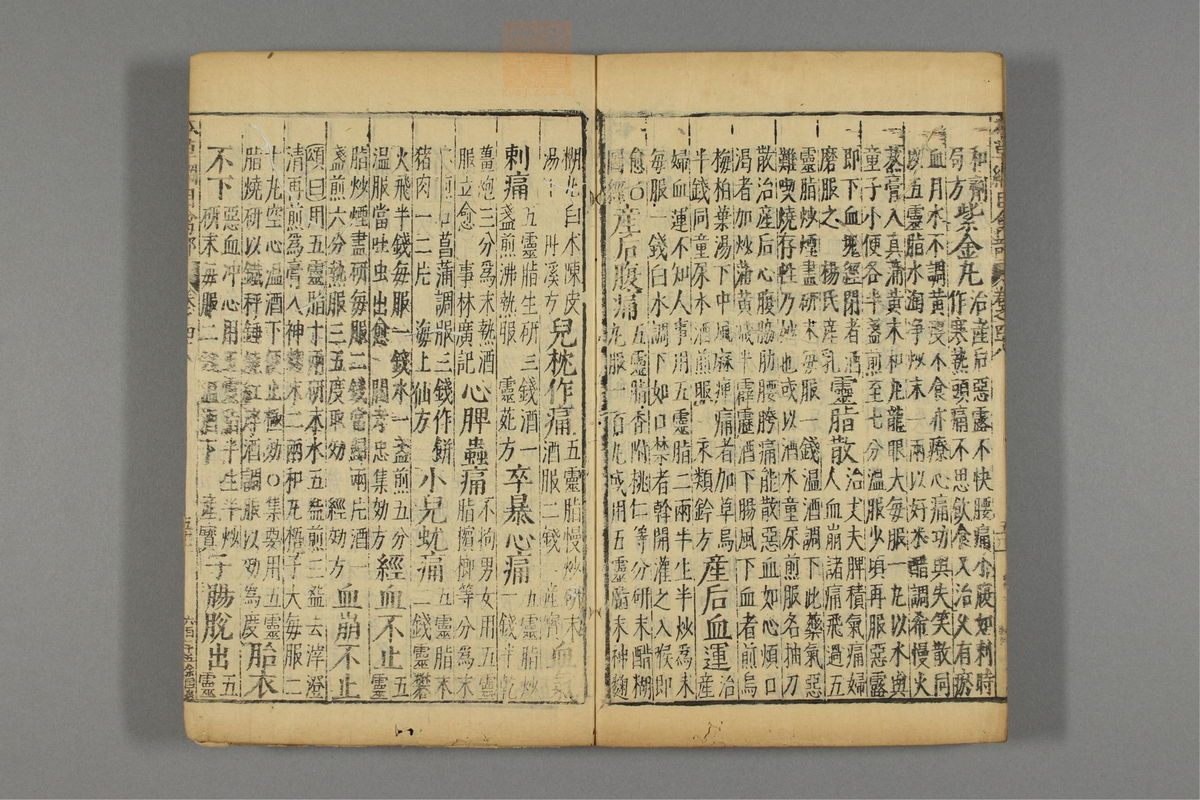 和劑 紫金丸 治産后惡露不快腰痛小腹如刺時
局方 作寒熱頭痛不思飲食又治久有瘀
血月水不調黃瘦不食亦療心痛功與失笑散同
以五靈脂水淘淨炒末一兩以好米醋調希慢火
熬膏入真蒲黃末和丸龍眼大每服一丸以水與
童子小便各半盞煎至七分溫服少頃再服惡露
即下血塊經閉者酒 靈脂散 治丈夫脾積氣痛婦
磨服之 楊氏産乳 人血崩諸痛飛過五
靈脂炒煙盡研末每服一錢溫酒調下此藥氣惡
難喫燒存性乃妙也或以酒水童尿煎服名抽刀
散治産后心腹脇肋腰胯痛能散惡血如心煩口
渴者加炒蒲黃減半霹靂酒下腸風下血者煎烏
梅柏葉湯下中風麻痺痛者加草烏 産后血運 治
半錢同童尿水酒煎服 永類鈐方 産
婦血運不知人事用五靈脂二兩半生半炒為末
每服一錢白水調下如口禁者斡開灌之入喉即
愈 ○ 産后腹痛 五靈脂香附桃仁等分研末醋糊
圖經 丸服一百丸或用五靈脂末神麴
糊丸白朮陳皮 兒枕作痛 五靈脂慢炒研末 血氣
湯下 丹溪方 酒服二錢 産寶
刺痛 五靈脂生研三錢酒一 卒暴心痛 五靈脂炒
盞煎沸熱服 靈苑方 一錢半乾
薑炮三分為末熱酒 心脾蟲痛 不拘男女用五靈
服立愈 事林廣記 脂檳榔等分為末
水煎石菖蒲調服三錢作餅 小兒蚘痛 五靈脂末
猪肉一二片 海上仙方 二錢靈礬
火飛半錢每服一錢水一盞煎五分 經血不止 五
溫服當吐虫出愈 閻孝忠集効方 靈
脂炒煙盡研每服二錢當歸兩片酒一
盞煎六分熱服三五度取効 經効方 血崩不止
頌曰用五靈脂十兩研末水五盌煎三盌去滓澄
清再煎為膏入神麴末二兩和丸梧子大每服二
十丸空心溫酒下便止極効○集要用五靈 胎衣
脂燒研以鐵秤錘燒紅淬酒調服以効為度
不下 惡血冲心用五靈脂半生半炒 子腸脫出 五
研末每服二錢溫酒下 産寶 靈